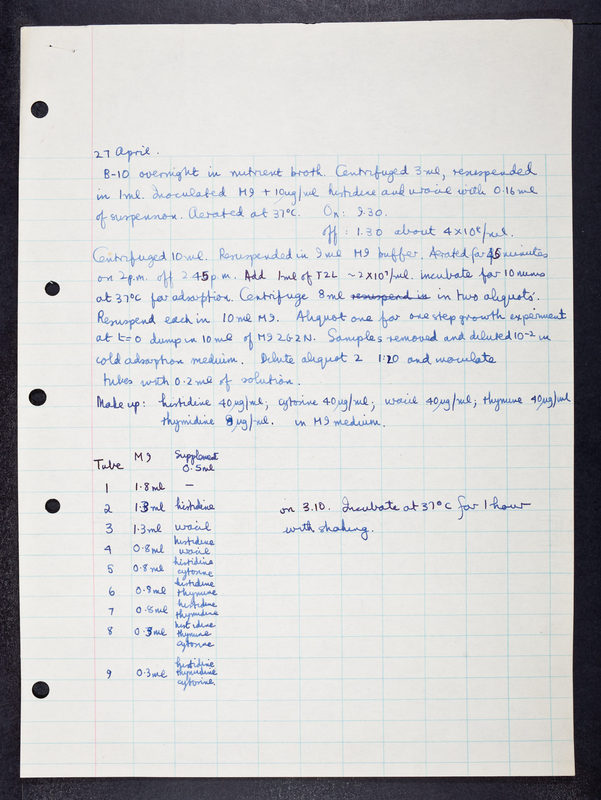 27 April.
B-10 overnight in nutrient broth. Centrifuged 3 ml, resuspended
in 1ml. Inoculated M9 + 10µg/ml histidine and uracil with 0.16 ml
of suspension. Aerated at 37°C. On: 9.30.
off: 1.30 about 4×10⁸/ml.
Centrifuged 10 ml. Resuspended in 9 ml M9 buffer. Aerated for 45 minutes
on 2 p.m. off 2 45 p.m. Add 1ml of T2L ~ 2×10⁹/ml. incubate for 10 mins
at 37°C for adsorption. Centrifuge 8 ml resuspend in in two aliquots.
Resuspend each in 10 ml M9. Aliquot one for one step growth experiment
at t=0 dump in 10 ml of M9 2G2N. Samples removed and diluted 10⁻² in
cold adsorption medium. Dilute aliquot 2 1:20 and inoculate
tubes with 0.2 ml of solution.
Make up: histidine 40µg/ml; cytosine 40µg/ml; uracil 40µg/ml; thymine 40µg/ml
thymidine 8µg/ml. in M9 medium.
Tube M9 Supplement 0.5ml
1 1.8 ml —
2 1.3 ml histidine
on 3.10. Incubate at 37°C for 1 hour
with shaking.
3 1.3 ml uracil
4 0.8 ml histidine uracil
5 0.8 ml histidine cytosine
6 0.8 ml histidine thymine
7 0.8 ml histidine thymidine
8 0.3 ml histidine thymine cytosine
9 0.3 ml histidine thymidine cytosine